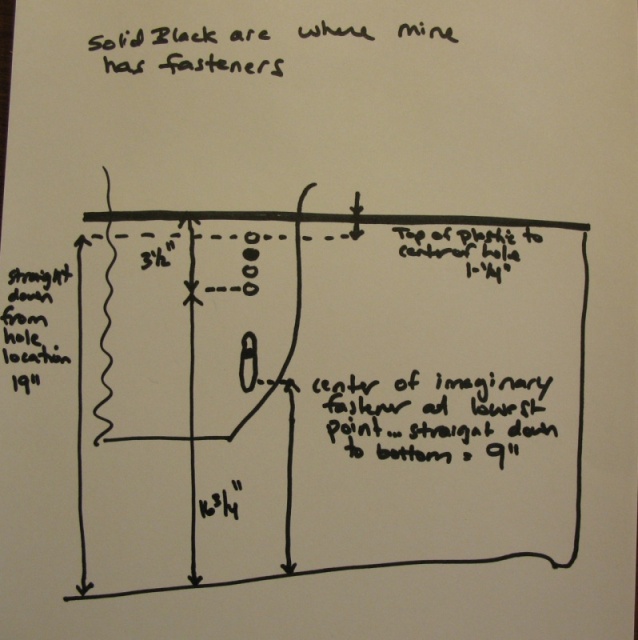 Solid Black are where mine
has fasteners
Top of plastic to
center of hole
1-1/4"
3 1/2"
straight
down
from
hole
location
19"
center of imaginary
fastener at lowest
point... straight down
to bottom = 9"
16 3/4"